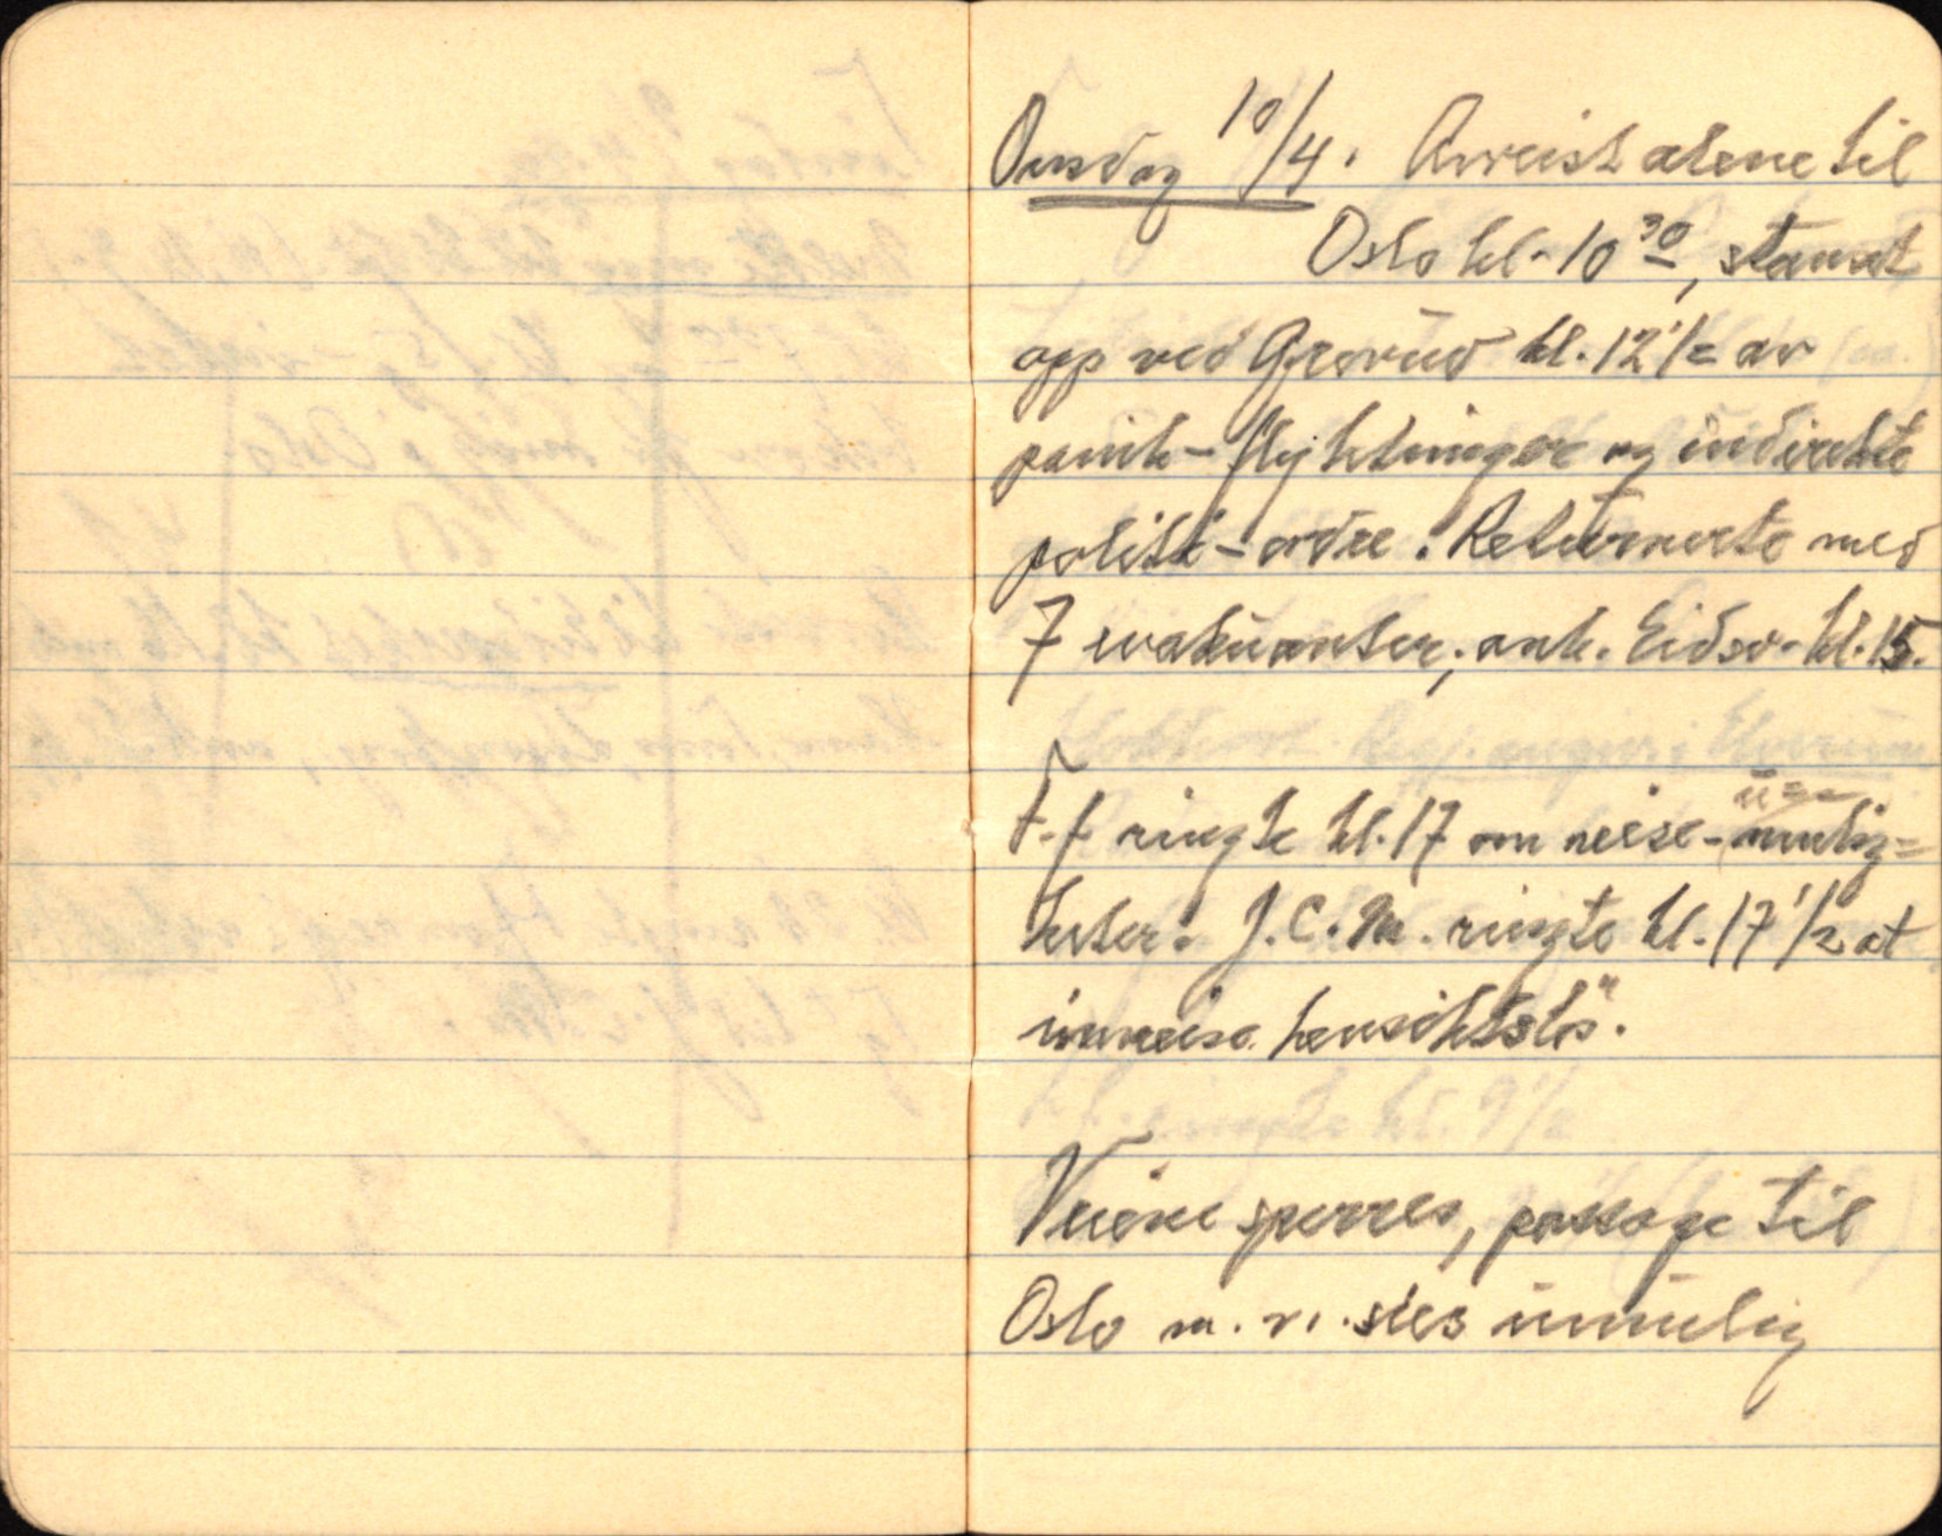 Onsdag 10/4. Avreist alene til
Oslo kl. 10 30, stanset
opp ved Grorud kl. 12 1/2 av
panik-flyktninger og indirekte
politi-ordre. Returnerte med
7 evakuanter, ank. Eidsv. kl. 15.
F.f ringte kl. 17 om reise-mulig=
heter. J.C.M. ringte kl. 17 1/2 at
innreise hensiktsløs".
Veiene sperres, passage til
Oslo m. v. sies umulig